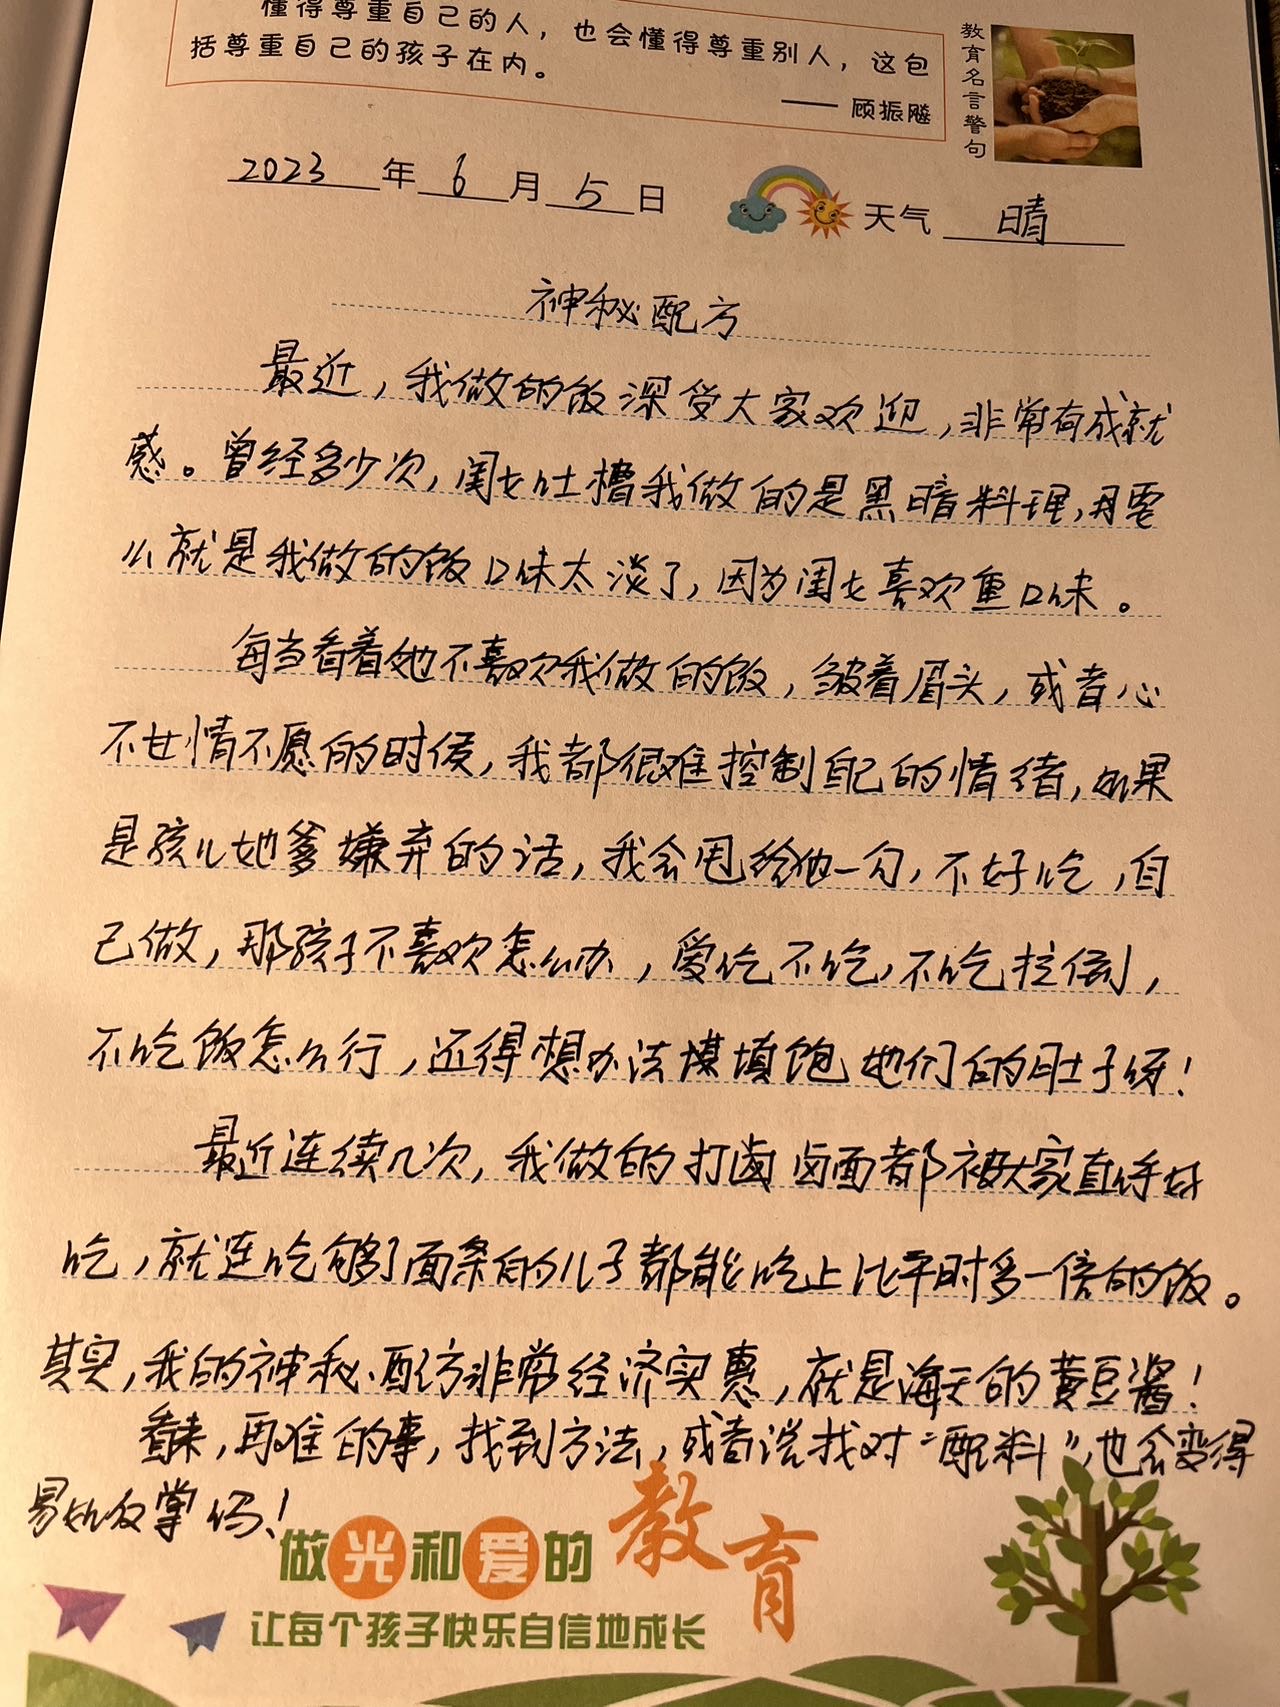 懂得尊重自己的人，也会懂得尊重别人，这包
括尊重自己的孩子在内。
—— 顾振飚
教育名言警句
2023 年 6 月 5 日 天气 晴
神秘配方
最近，我做的饭深受大家欢迎，非常有成就
感。曾经多少次，闺女吐槽我做的是黑暗料理，再要
么就是我做的饭口味太淡了，因为闺女喜欢重口味。
每当看着她不喜欢我做的饭，皱着眉头，或者心
不甘情不愿的时候，我都很难控制自己的情绪，如果
是孩儿她爹嫌弃的话，我会甩给他一句，不好吃，自
己做，那孩子不喜欢怎么办，爱吃不吃，不吃拉倒，
不吃饭怎么行，还得想办法谋填饱她们的肚子呀！
最近连续几次，我做的打卤 卤面都被大家直呼好
吃，就连吃够了面条的儿子都能吃上比平时多一倍的饭。
其实，我的神秘配方非常经济实惠，就是海天的黄豆酱！
看来，再难的事，找到方法，或者说找对“配料”，也会变得
易如反掌吗！
做光和爱的教育
让每个孩子快乐自信地成长